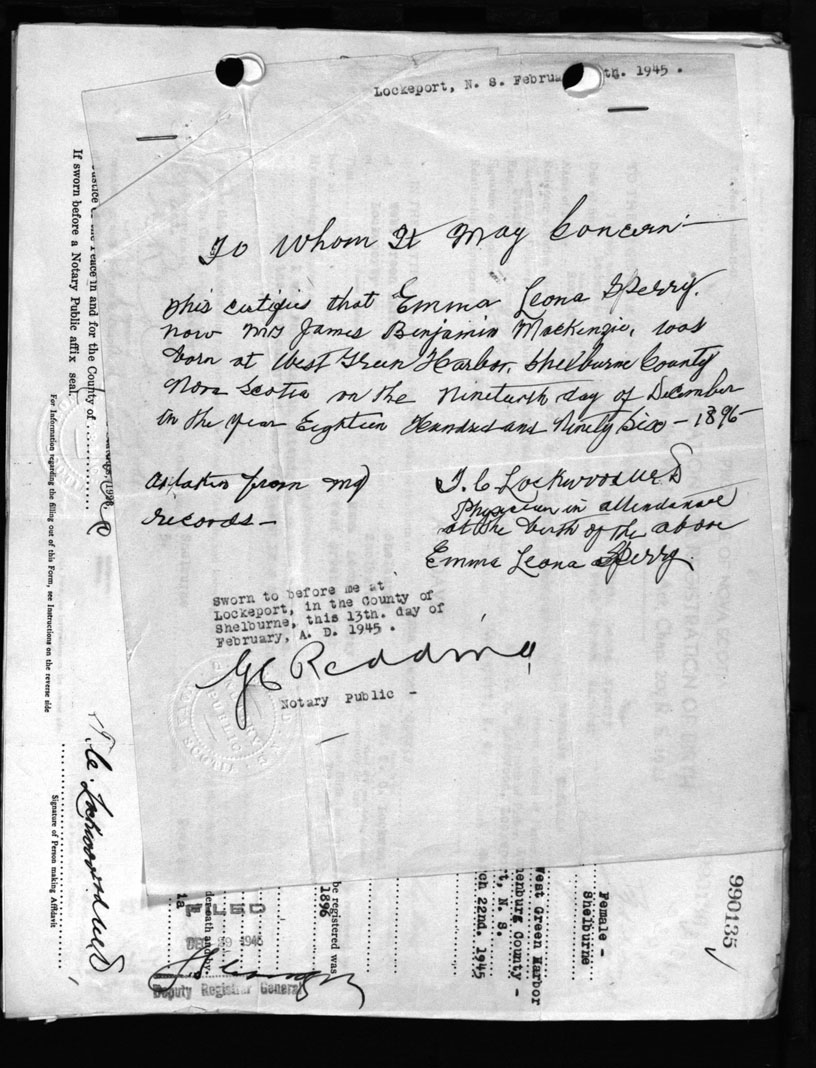 Lockeport, N. S. February th. 1945.
To Whom It May Concern:-
This certifies that Emma Leona Sperry,
now Mrs James Benjamin Mackenzie, was
born at West Green Harbor, Shelburne County
Nova Scotia on the Nineteenth day of December
in the year Eighteen Hundred and Ninety Six - 1896 -
as taken from my
records -
T. C. Lockwood M.D
Physician in attendance
at the birth of the above
Emma Leona Sperry
Sworn to before me at
Lockeport, in the County of
Shelburne, this 13th. day of
February, A. D. 1945.
Notary Public -
Justice of the Peace in and for the County of
If sworn before a Notary Public affix seal.
For Information regarding the filling out of this Form, see Instructions on the reverse side
Lockwood M.D
Signature of Person making Affidavit
990135
Female -
Shelburne
West Green Harbor
nenburg County -
t, N. S.
ch 22nd. 1945
be registered was
1896
1945
Deputy Registrar General